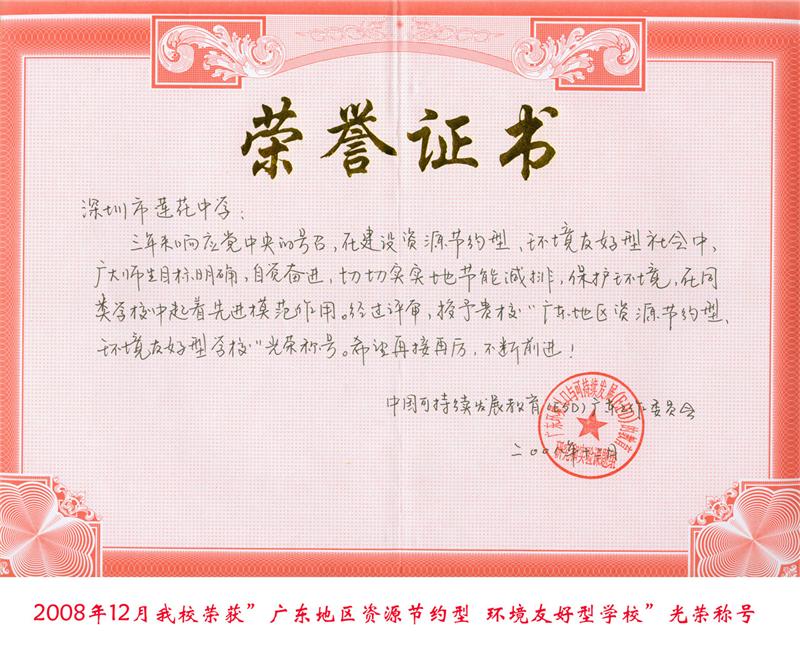 荣誉证书
深圳市莲花中学:
三年来响应党中央的号召,在建设资源节约型、环境友好型社会中,
广大师生目标明确,自觉奋进,切切实实地节能减排,保护环境,在同
类学校中起着先进模范作用。经过评审,授予贵校“广东地区资源节约型、
环境友好型学校”光荣称号。希望再接再厉,不断前进!
中国可持续发展教育(ESD)广东工作委员会
二〇〇八年十二月
2008年12月我校荣获”广东地区资源节约型 环境友好型学校”光荣称号